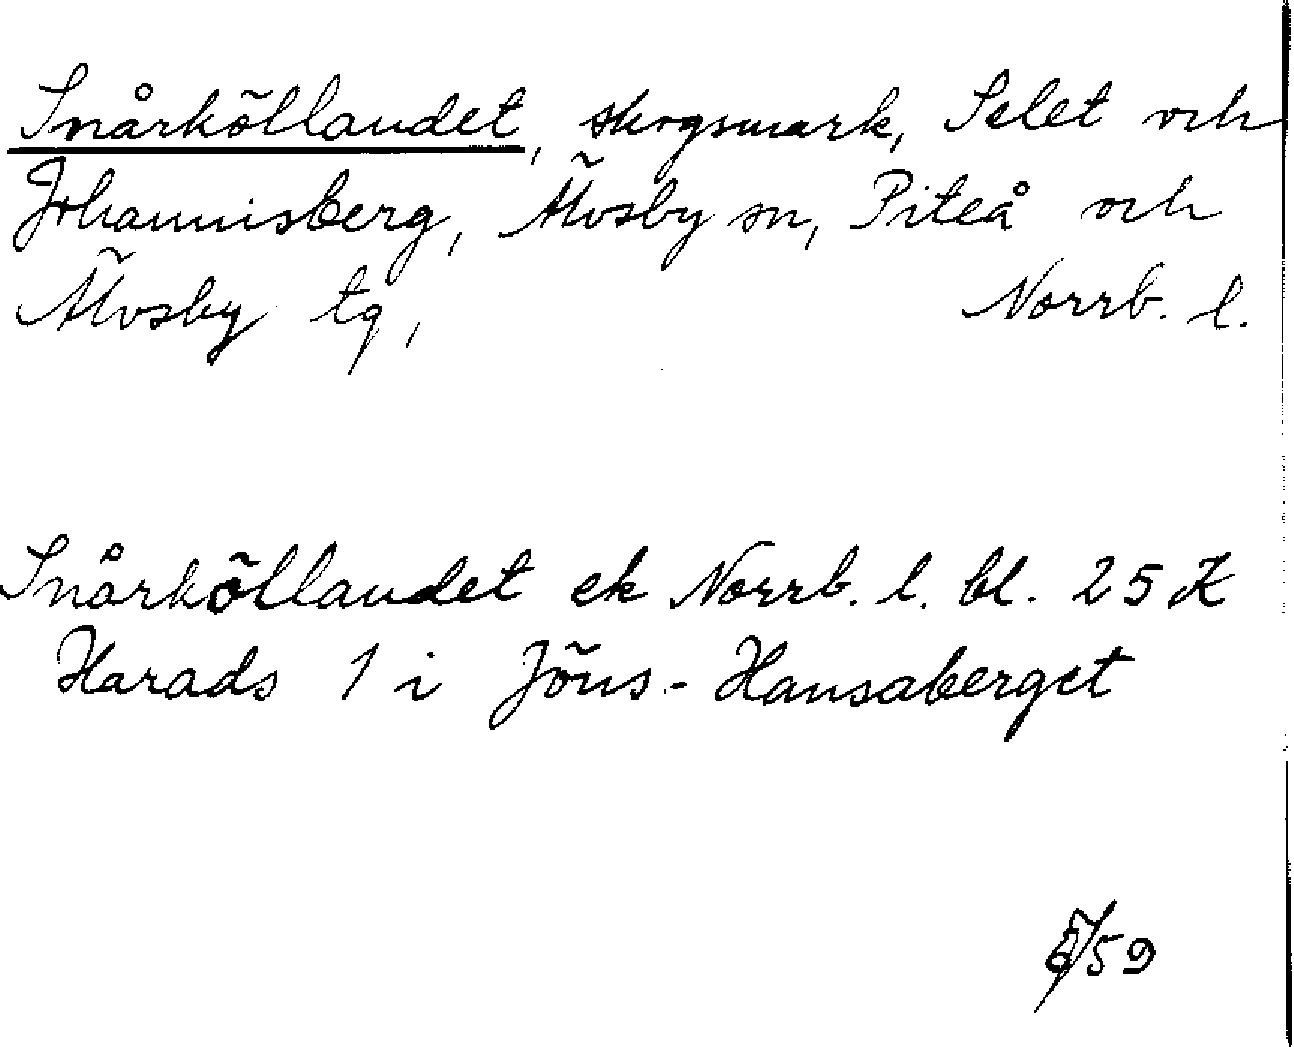 Snårköllandet, skogsmark, Selet och
Johannisberg, Älvsby sn, Piteå och
Älvsby tg, Norrb. l.
Snårköllandet ek Norrb. l. bl. 25 K
Harads 1 i Jöns-Hansaberget
/59